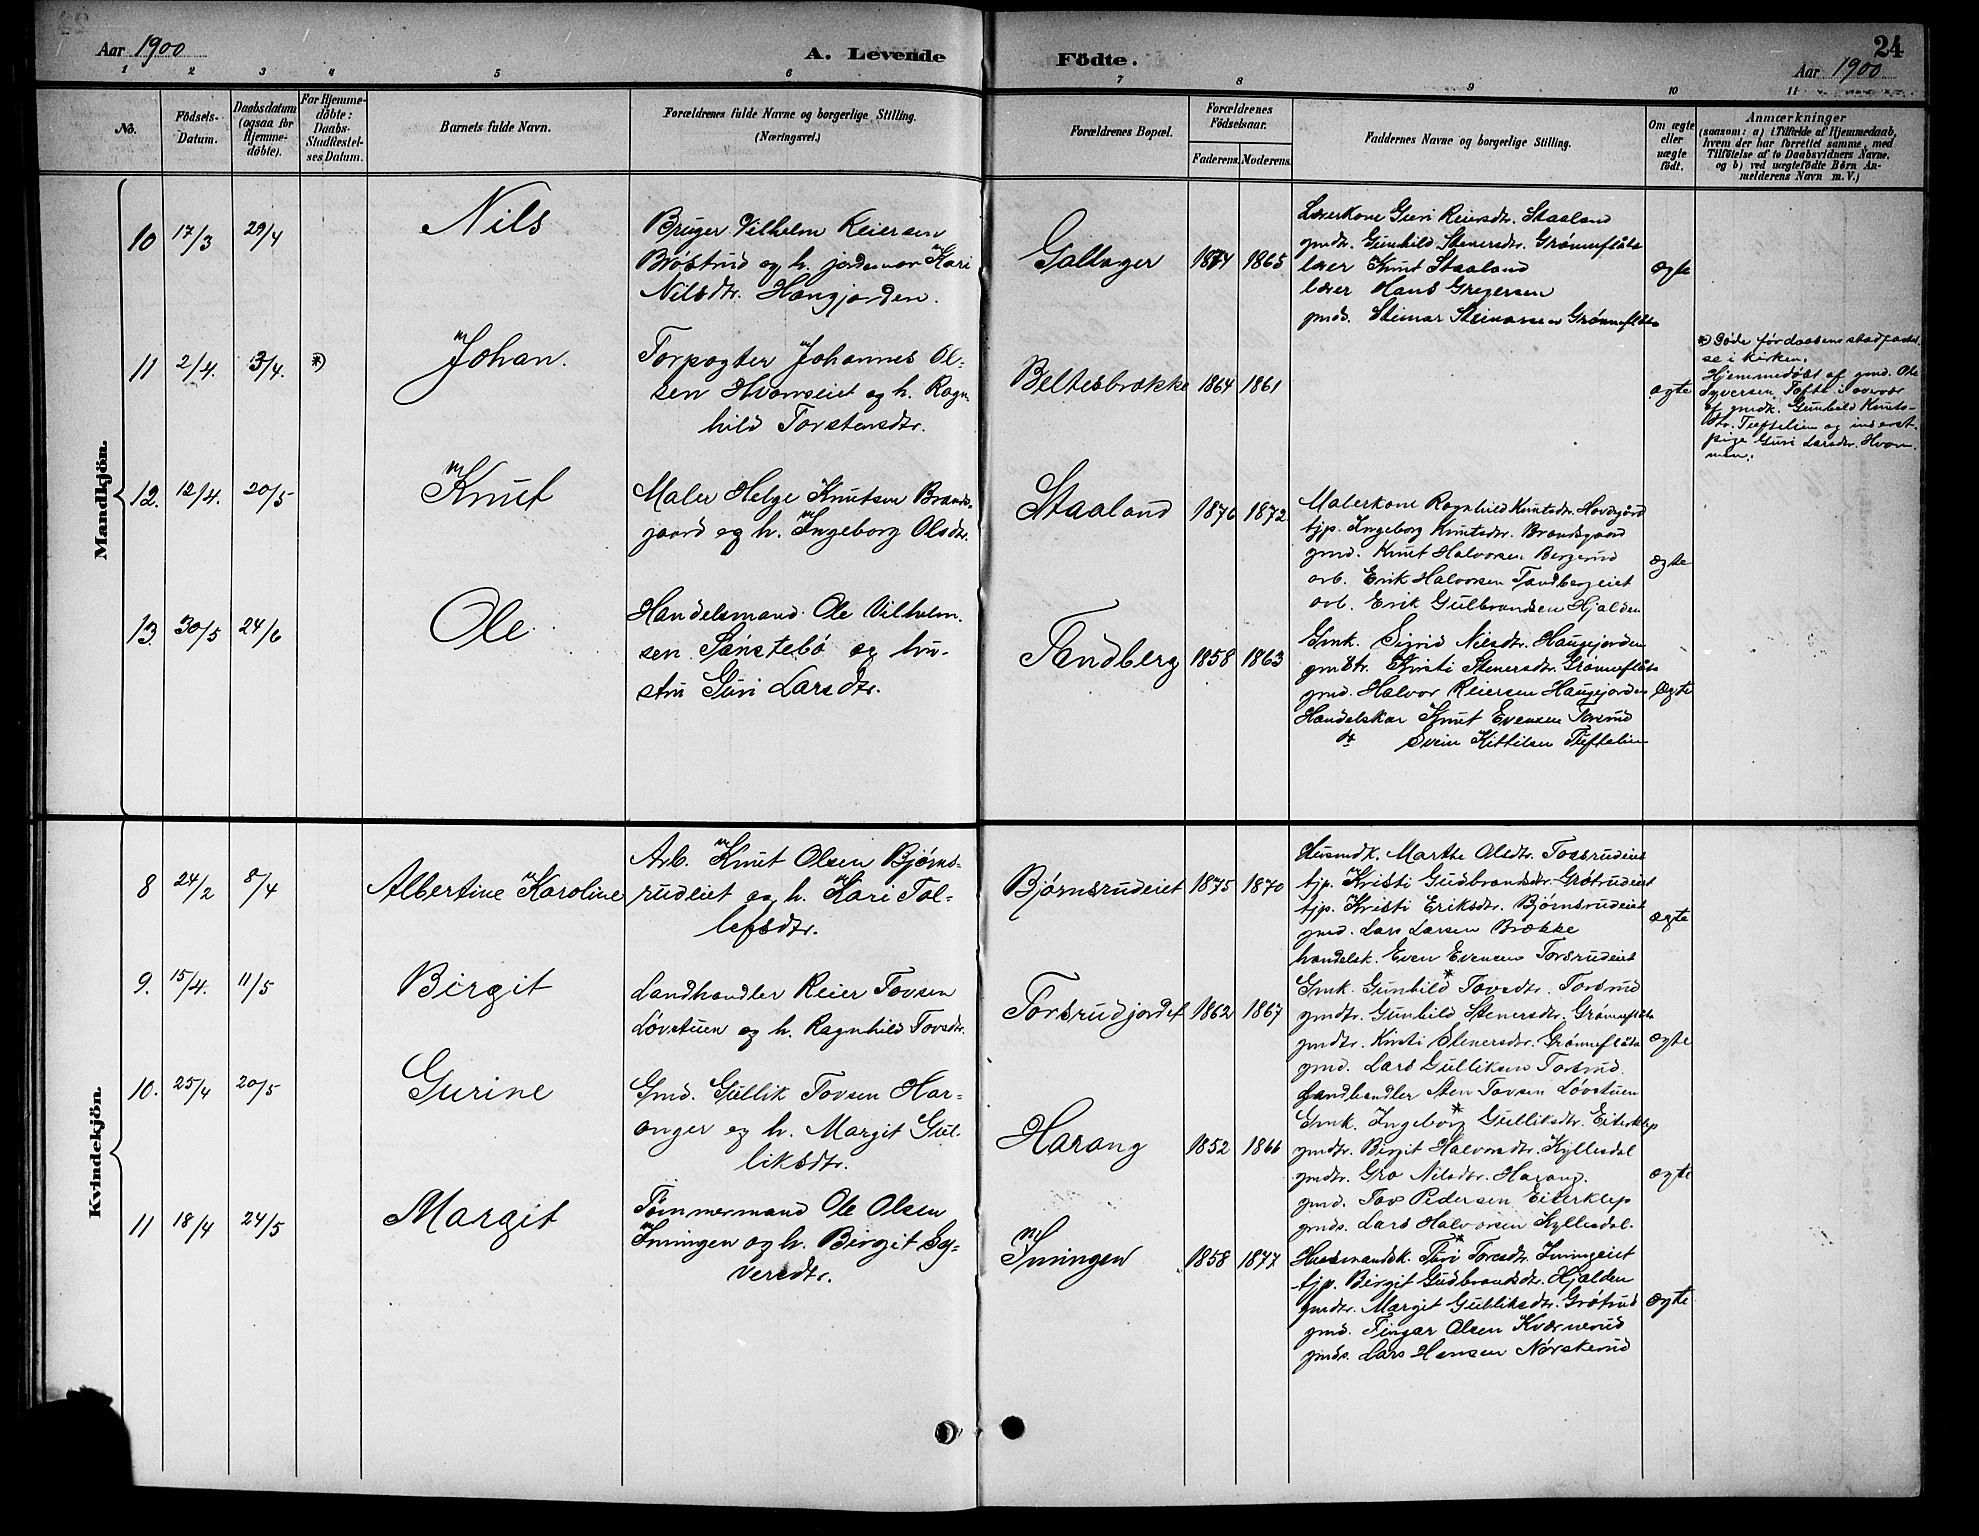 Aar 1900
A. Levende
Födte.
24
Aar 1900
1 2 3 4 5 6 7 8 9 10 11
No.
Födsels-
Datum.
Daabsdatum
(ogsaa for
Hjemme-
döbte).
For Hjemme-
döbte:
Daabs-
Stadfæstel-
ses Datum.
Barnets fulde Navn.
Forældrenes fulde Navne og borgerlige Stilling.
(Næringsvei.)
Forældrenes Bopæl.
Forældrenes
Födselsaar.
Faderens. Moderens.
Faddernes Navne og borgerlige Stilling.
Om ægte
eller
uægte
födt.
Anmærkninger
(saasom: a) i Tilfælde af Hjemmedaab,
hvem der har forrettet samme, med
Tilföielse af to Daabsvidners Navne.
og b) ved uægtefödte Börn An-
melderens Navn m. V.)
Mandkjön.
10 17/3 29/4
Nils
Bruger Vilhelm Reiersen
Brøstrud og h. jordemor Kari
Nilsdtr. Haugjorden.
Gallager
1874 1865
Lærerkone Guri Reiersdtr. Staaland
gmdtr. Gunhild Stenersdtr. Grønneflåta
lærer Knut Staaland
lærer Hans Gregersen
gmds. Steinar Steinarsen Grønneflåta
ægte
11 2/4. 3/4. *)
Johan.
Torpogter Johannes Ol-
sen Hvamseiet og h. Ragn-
hild Torstensdtr.
Beltesbrække
1864 1861
ægte
*) Døde før daabens stadfæstel-
se i kirken.
Hjemmedøbt af gmd. Ole
Syversen Tofte i overvær
af gmdk. Gunhild Knuts-
dtr. Tuftelien og inderst-
pige Guri Larsdtr. Hvam-
men.
12. 12/4. 20/5
Knut
Maler Helge Knutsen Brands-
gaard og h. Ingeborg Olsdtr.
Staaland
1876 1872
Malerkone Ragnhild Knutsdtr. Hovdgård
tjp. Ingeborg Knutsdtr. Brandsgaard
gmd. Knut Halvorsen Bergerud
arb. Erik Halvorsen Tandbergeiet
arb. Erik Gulbrandsen Hjalden
ægte
13. 30/5 24/6
Ole
Handelsmand Ole Vilhelm-
sen Sønstebö og hu-
stru Guri Larsdtr.
Tandberg
1858 1863
Gmk. Sigrid Nilsdtr. Haugejorden
gmdtr. Kristi Stenersdtr. Grønneflåta
gmd. Halvor Reiersen Haugejorden
Handelskar Knut Evensen Forsrud
do Svein Kittilsen Tuftelien
ægte
Kvindekjön.
8 24/2 8/4
Albertine Karoline
Arb. Knut Olsen Bjørns-
rudeiet og h. Kari Tol-
lefsdtr.
Bjørnsrudeiet
1875 1870
Husmdk. Marthe Olsdtr. Forsrudeiet
tjp. Kristi Gudbrandsdtr. Grøtrudeiet
tjp. Kristi Eriksdtr. Bjørnsrudeiet
gmd. Lars Larsen Brække
handelsk. Even Evensen Forsrudeiet
ægte
9. 15/4. 11/5
Birgit
Landhandler Reier Tovsen
Løvstuen og h. Ragnhild Tovsdtr.
Forsrudjordet
1862 1867
Gmk. Gunhild* Tovsdtr. Forsrud
gmdtr. Gunhild Stenersdtr. Grønneflåta
gmdtr. Kristi Stenersdtr. Grønneflåta
gmd. Lars Gulliksen Forsrud.
Landhandler Sten Tovsen Løvstuen
ægte
10. 25/4 20/5
Gurine
Gmd. Gullik Tovsen Har-
anger og h. Margit Gul-
liksdtr.
Harang
1852 1866
Gmk. Ingeborg* Gulliksdtr. Eiterklep
gmdtr. Birgit Halvorsdtr. Kyllesdal
gmdtr. Gro Nilsdtr. Harang.
gmd. Tov Pedersen Eiterklep
gmds. Lars Halvorsen Kyllesdal.
ægte
11 18/4 24/5
Margit
Tømmermand Ole Olsen
Imingen og h. Birgit Sy-
versdtr.
Imingen
1858 1877
Husmandsk. Turi* Toresdtr. Imingeiet
tjp. Birgit Gudbrandsdtr. Hjalden
gmdtr. Margit Gulliksdtr. Grøtrud
gmd. Fingar Olsen Kværnerud
gmds. Lars Hansen Nørsterud
ægte